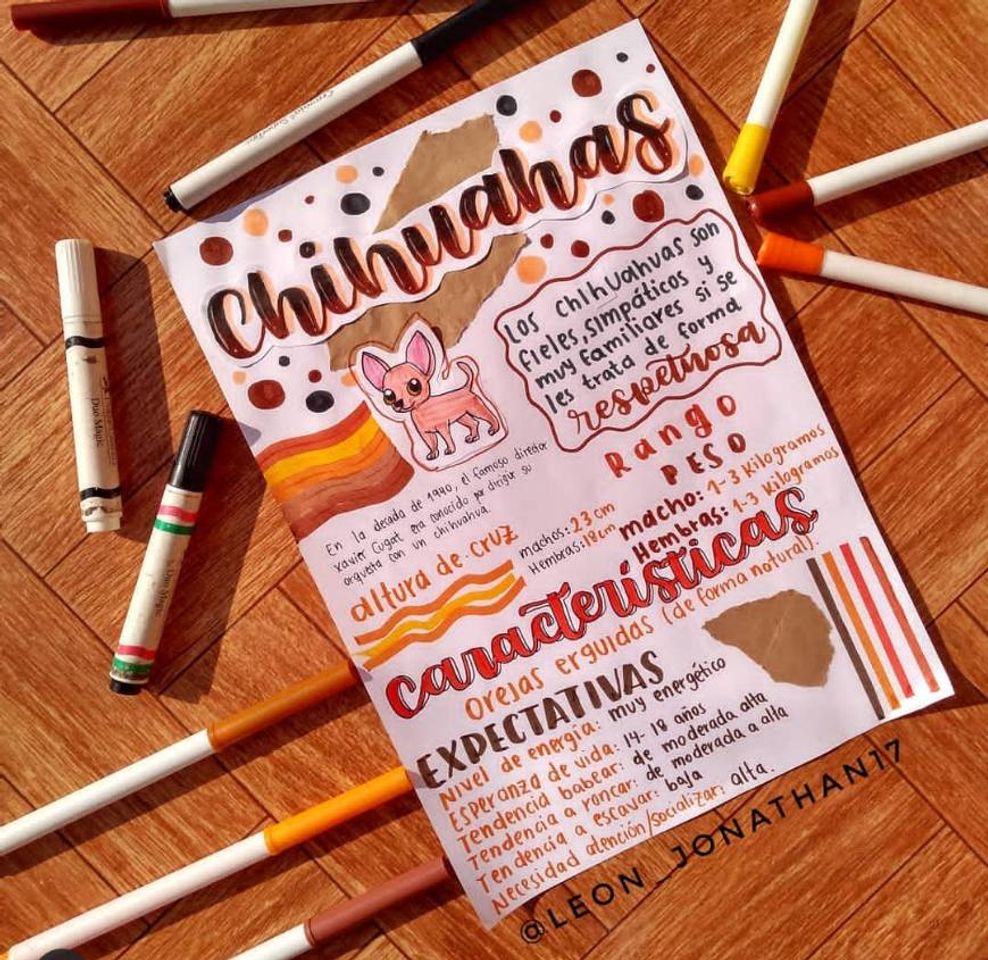 chihuahas
Los chihuahuas son
fieles, simpáticos y
muy familiares si se
les trata de forma
respetuosa
En la decada de 1940, el famoso director
Xavier Cugat era conocido por dirigir su
orquesta con un chihuahua.
Rango
PESO
macho: 1-3 Kilogramos
Hembras: 1-3 Kilogramos
altura de cruz
machos: 23 cm
Hembras: 18cm
características
Orejas erguidas (de forma natural).
EXPECTATIVAS
Nivel de energia: muy energético
Esperanza de vida: 14-18 años
Tendencia babear: de moderada alta
Tendencia a roncar: de moderada a alta
Tendencia a escavar: baja
Necesidad atención/socializar: alta.
@LEON_JONATHAN17